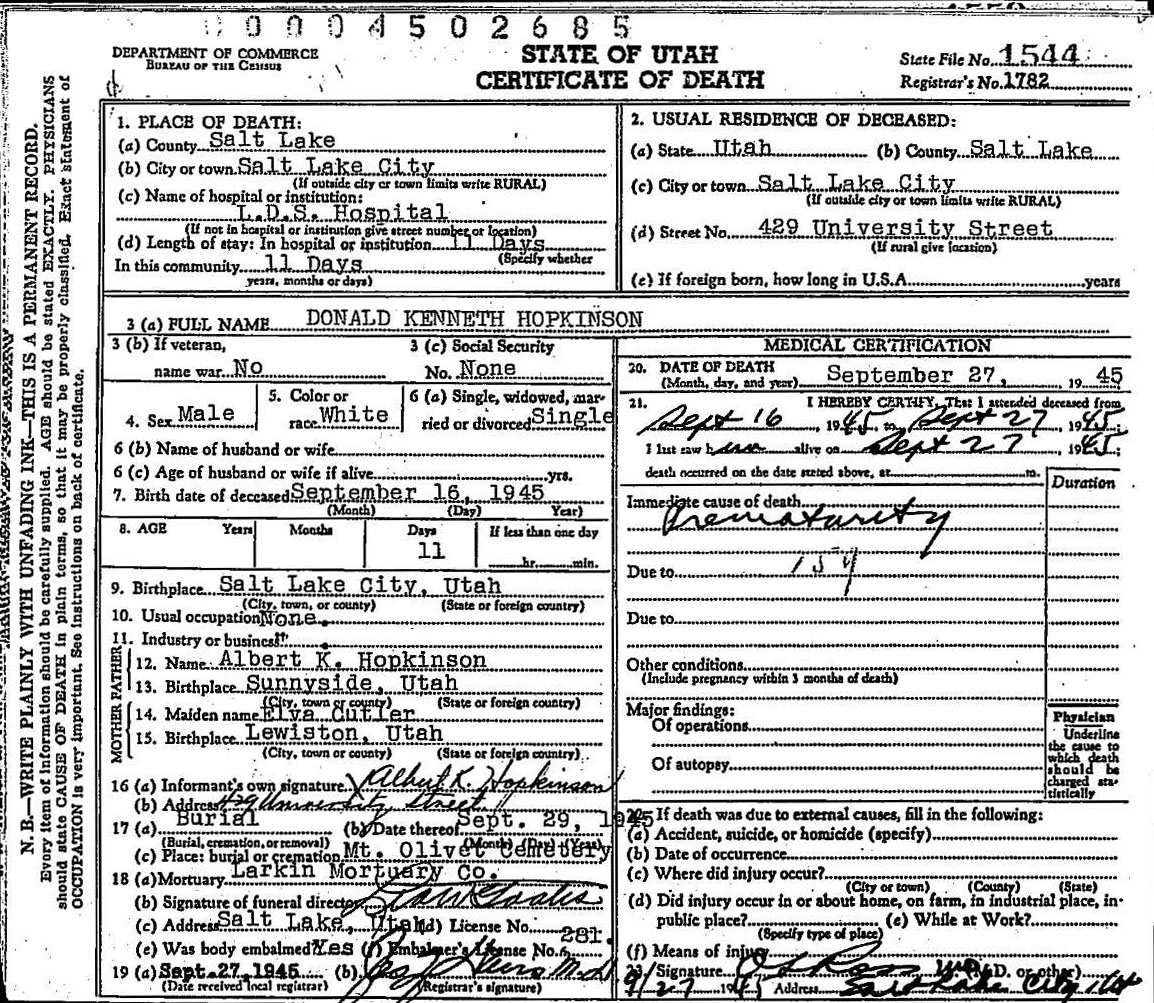 0004502685
DEPARTMENT OF COMMERCE
BUREAU OF THE CENSUS
STATE OF UTAH
CERTIFICATE OF DEATH
State File No. 1544
Registrar's No. 1782
N. B.—WRITE PLAINLY WITH UNFADING INK—THIS IS A PERMANENT RECORD.
Every item of information should be carefully supplied. AGE should be stated EXACTLY. PHYSICIANS
should state CAUSE OF DEATH in plain terms, so that it may be properly classified. Exact statement of
OCCUPATION is very important. See instructions on back of certificate.
1. PLACE OF DEATH:
(a) County Salt Lake
(b) City or town Salt Lake City
(If outside city or town limits write RURAL)
(c) Name of hospital or institution:
L.D.S. Hospital
(If not in hospital or institution give street number or location)
(d) Length of stay: In hospital or institution 11 Days
(Specify whether
In this community 11 Days
years, months or days)
2. USUAL RESIDENCE OF DECEASED:
(a) State Utah (b) County Salt Lake
(c) City or town Salt Lake City
(If outside city or town limits write RURAL)
(d) Street No. 429 University Street
(If rural give location)
(e) If foreign born, how long in U.S.A. years
3 (a) FULL NAME DONALD KENNETH HOPKINSON
3 (b) If veteran,
name war No
3 (c) Social Security
No. None
4. Sex Male
5. Color or
race White
6 (a) Single, widowed, mar-
ried or divorced Single
6 (b) Name of husband or wife
6 (c) Age of husband or wife if alive yrs.
7. Birth date of deceased September 16, 1945
(Month) (Day) Year)
8. AGE Years Months Days If less than one day
11 hr. min.
9. Birthplace Salt Lake City, Utah
(City, town, or county) (State or foreign country)
10. Usual occupation None.
11. Industry or business "
FATHER
12. Name Albert K. Hopkinson
13. Birthplace Sunnyside, Utah
(City, town or county) (State or foreign country)
MOTHER
14. Maiden name Elva Cutler
15. Birthplace Lewiston, Utah
(City, town or county) (State or foreign country)
16 (a) Informant's own signature Albert K. Hopkinson
(b) Address 429 University Street
17 (a) Burial (b) Date thereof Sept. 29, 1945
(Burial, cremation, or removal) (Month) (Day) (Year)
(c) Place: burial or cremation Mt. Olivet Cemetery
18 (a) Mortuary Larkin Mortuary Co.
(b) Signature of funeral director
(c) Address Salt Lake, Utah (d) License No. 281.
(e) Was body embalmed? Yes (f) Embalmer's License No.
19 (a) Sept. 27, 1945 (b) M.D.
(Date received local registrar) (Registrar's signature)
MEDICAL CERTIFICATION
20. DATE OF DEATH
(Month, day, and year) September 27, 1945
21. I HEREBY CERTIFY, That I attended deceased from
Sept 16, 1945, to Sept 27 1945;
I last saw him alive on Sept 27, 1945;
death occurred on the date stated above, at m.
Duration
Immediate cause of death
Prematurity
Due to 159
Due to
Other conditions
(Include pregnancy within 3 months of death)
Major findings:
Of operations
Of autopsy
Physician
Underline
the cause to
which death
should be
charged sta-
tistically
22. If death was due to external causes, fill in the following:
(a) Accident, suicide, or homicide (specify)
(b) Date of occurrence
(c) Where did injury occur?
(City or town) (County) (State)
(d) Did injury occur in or about home, on farm, in industrial place, in
public place? (e) While at Work?
(Specify type of place)
(f) Means of injury
23. Signature (M.D. or other)
9/27 1945 Address Salt Lake City, Ut